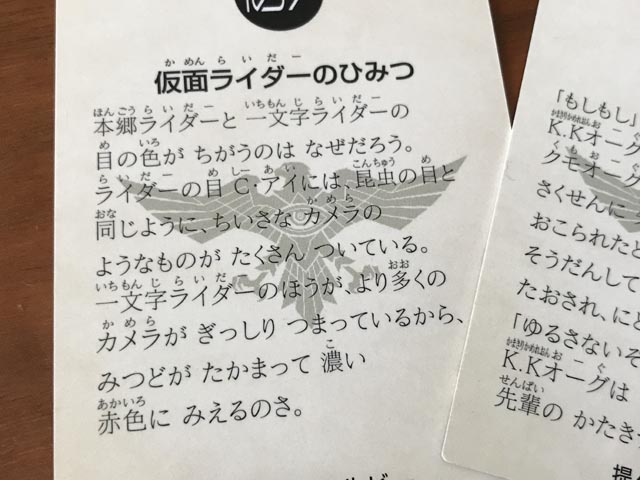 仮面ライダーのひみつ
本郷ライダーと 一文字ライダーの
目の色が ちがうのは なぜだろう。
ライダーの目 C・アイには、昆虫の目と
同じように、ちいさな カメラの
ようなものが たくさん ついている。
一文字ライダーのほうが、より多くの
カメラが ぎっしり つまっているから、
みつどが たかまって 濃い
赤色に みえるのさ。
「もしもし」
K.Kオーグ
クモオーグ
さくせんに
おこられたと
そうだんして
たおされ、にと
「ゆるさないぞ
K.Kオーグは
先輩の かたき